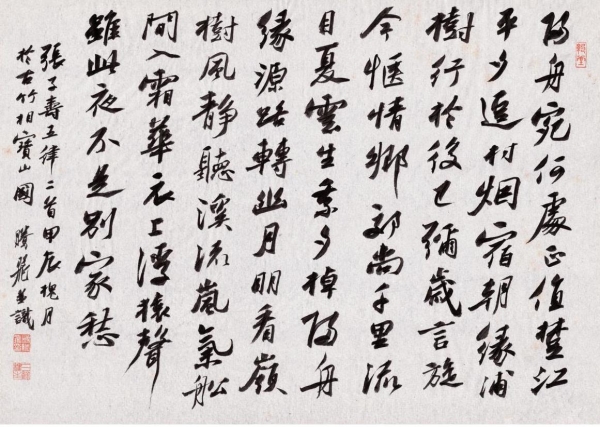 歸舟宛何處正值楚江
平夕逗村烟宿朝緣浦
樹行於役已彌歲言旋
今愜情鄉郊尚千里流
目夏雲生乘夕棹歸舟
緣源路轉幽月明看嶺
樹風靜聽溪流嵐氣船
間入霜華衣上浮猿聲
雖此夜不是別家愁
張子壽五律二首甲辰槐月
於古竹相寶山園